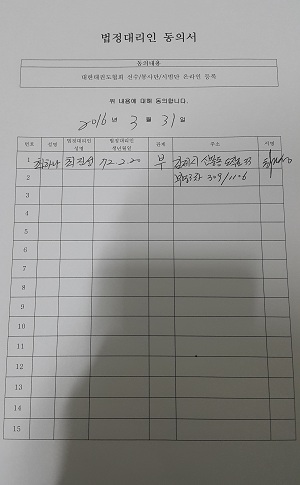 법정대리인 동의서
동의내용
대한태권도협회 선수/봉사단/시범단 온라인 등록
위 내용에 대해 동의합니다.
2016 년 3 월 31 일
번호 성명 법정대리인 성명 법정대리인 생년월일 관계 주소 서명
1 최하나 72.2.20 부
2 309/1106
3
4
5
6
7
8
9
10
11
12
13
14
15